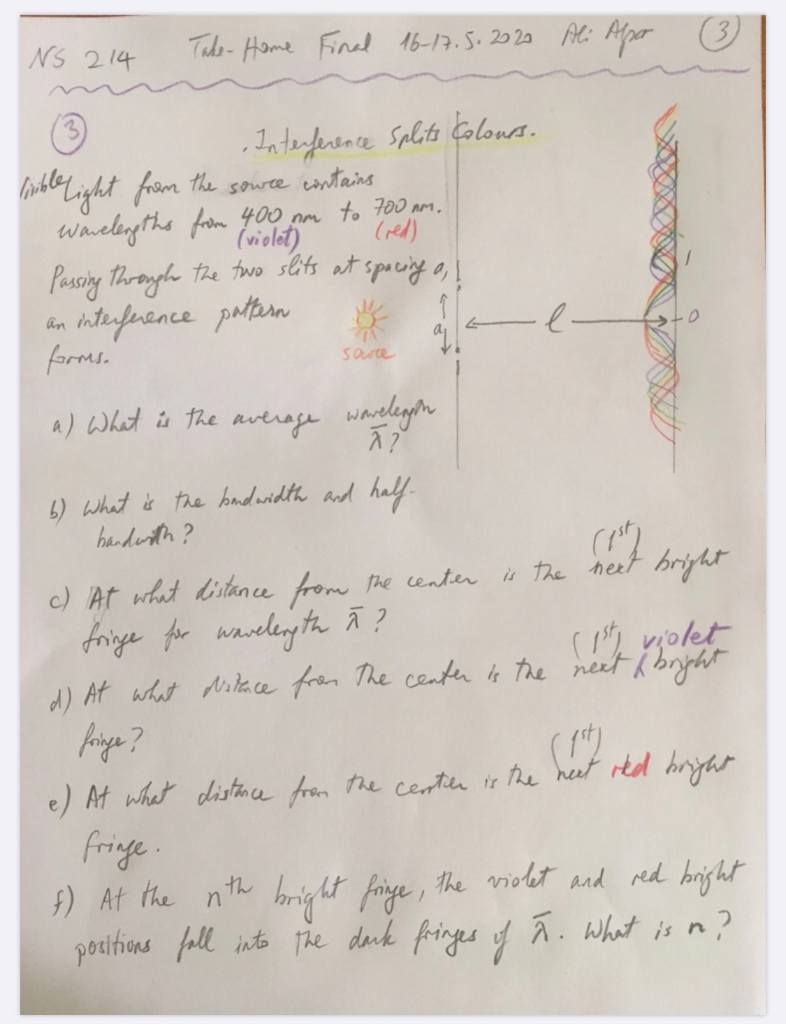 NS 214 Take-Home Final 16-17.5.2020 Ali Alpar 3
3
. Interference Splits Colours.
Visible Light from the source contains
wavelengths from 400 nm to 700 nm.
(violet) (red)
Passing through the two slits at spacing a,
an interference pattern
forms.
source
a
l
1
0
a) What is the average wavelength
λ̄?
b) What is the bandwidth and half-
bandwith?
c) At what distance from the center is the next (1st) bright
fringe for wavelength λ̄?
d) At what distance from the center is the next (1st) violet bright
fringe?
e) At what distance from the center is the next (1st) red bright
fringe.
f) At the nth bright fringe, the violet and red bright
positions fall into the dark fringes of λ̄. What is n?